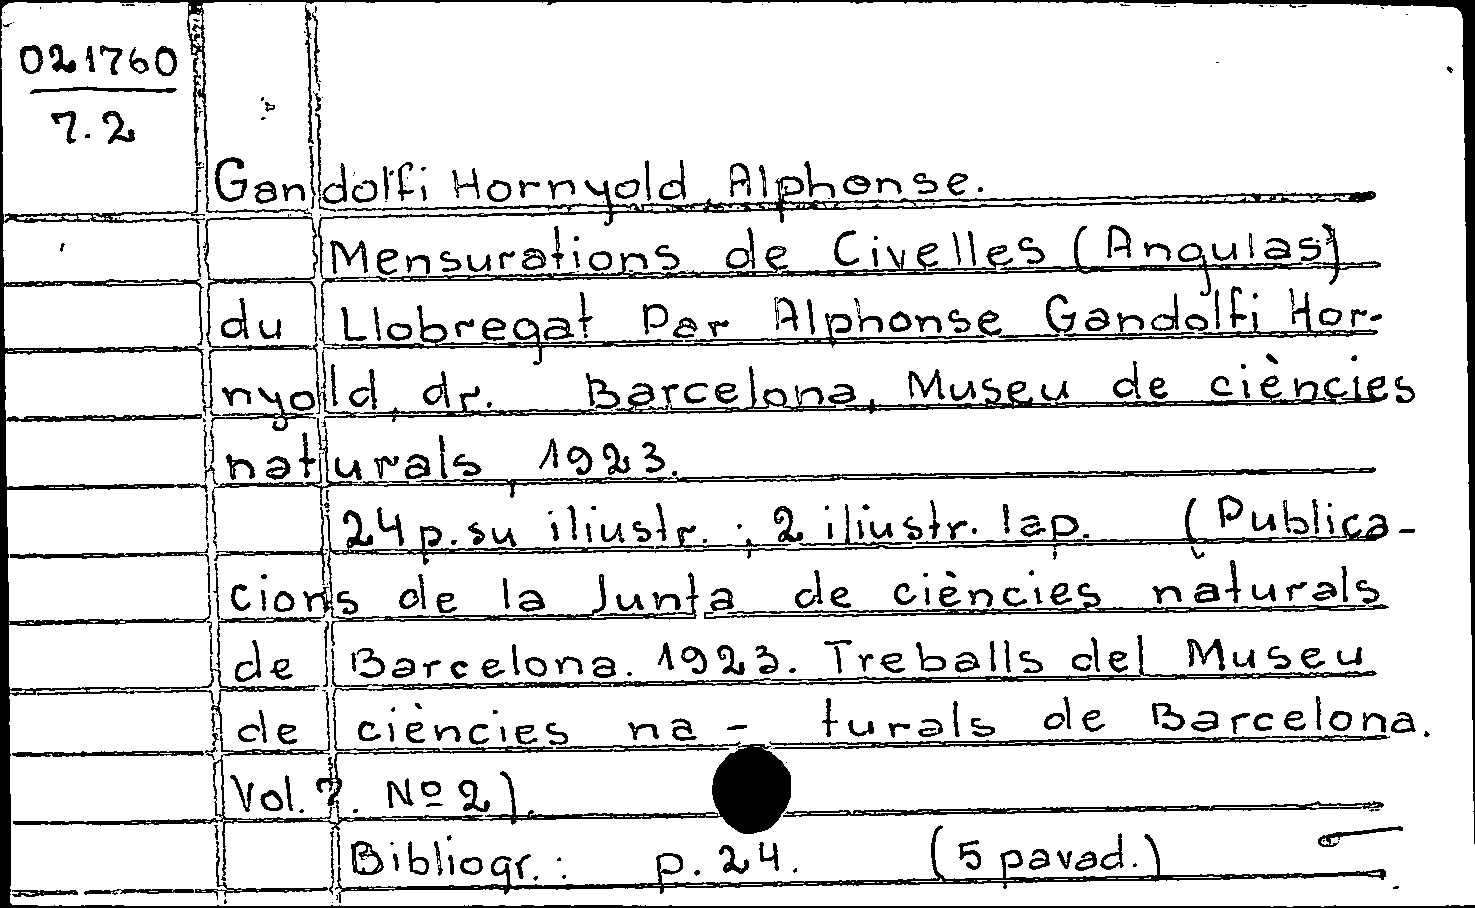 021760
7.2
Gandolfi Hornyold, Alphonse.
Mensurations de Civelles (Angulas)
du Llobregat par Alphonse Gandolfi Hor-
nyold, dr. Barcelona, Museu de ciències
naturals, 1923.
24 p. su iliustr. ; 2 iliustr. lap. (Publica-
cions de la Junta de ciències naturals
de Barcelona. 1923. Treballs del Museu
de ciències na - turals de Barcelona.
Vol. 7. Nº 2).
Bibliogr.: p. 24. (5 pavad.)